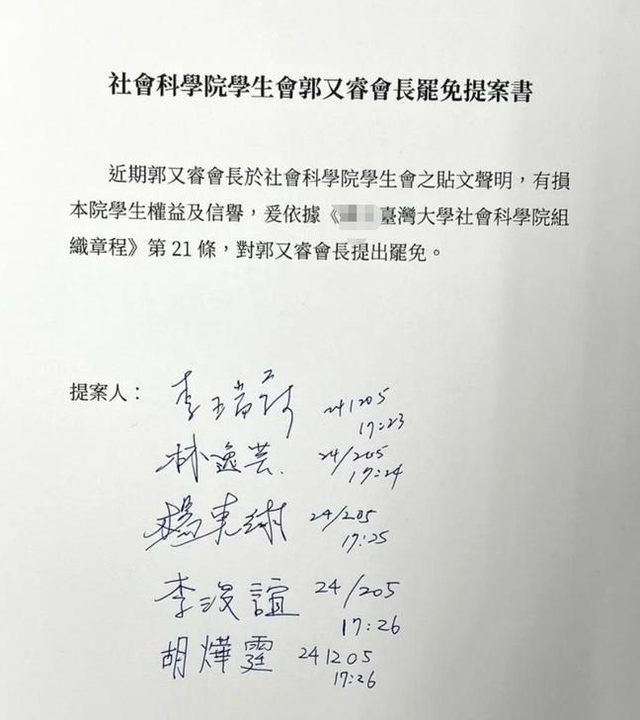 社會科學院學生會郭又睿會長罷免提案書
近期郭又睿會長於社會科學院學生會之貼文聲明,有損
本院學生權益及信譽,爰依據《臺灣大學社會科學院組
織章程》第 21 條,對郭又睿會長提出罷免。
提案人:
李
241205
17:23
林逸芸
241205
17:24
楊東
241205
17:25
李浚誼 241205
17:26
胡燁霆 241205
17:26